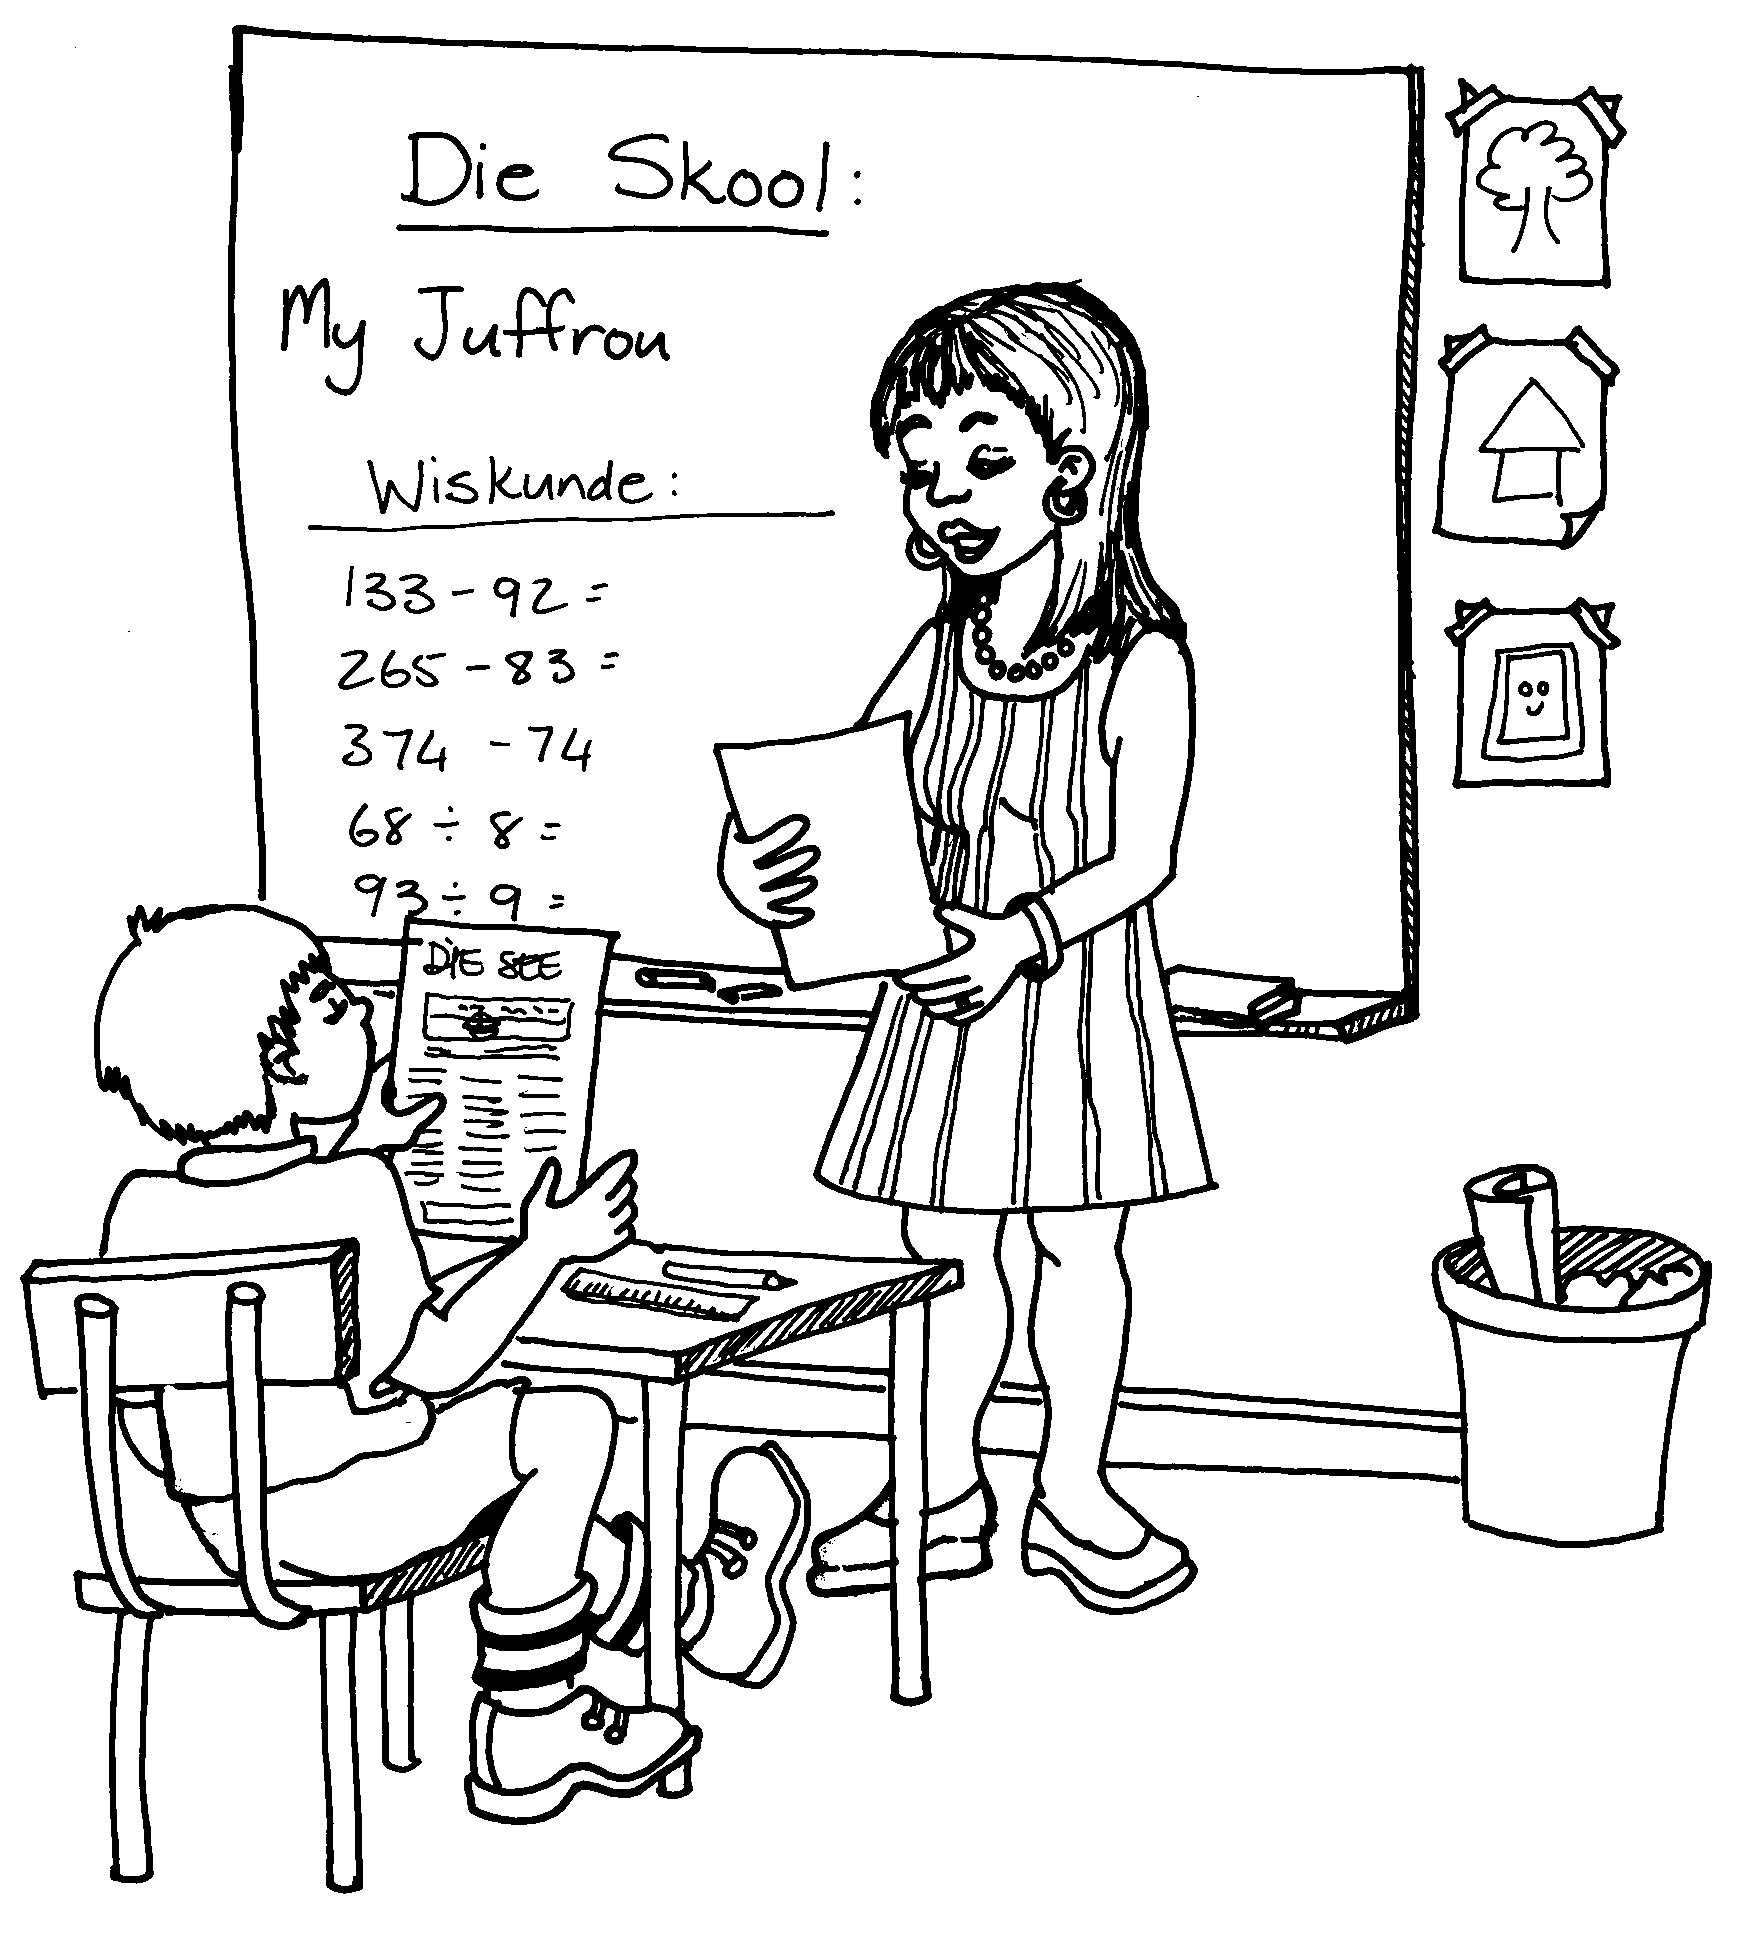 Die Skool:
My Juffrou
Wiskunde:
133 - 92 =
265 - 83 =
374 - 74
68 ÷ 8 =
93 ÷ 9 =
DIE SEE